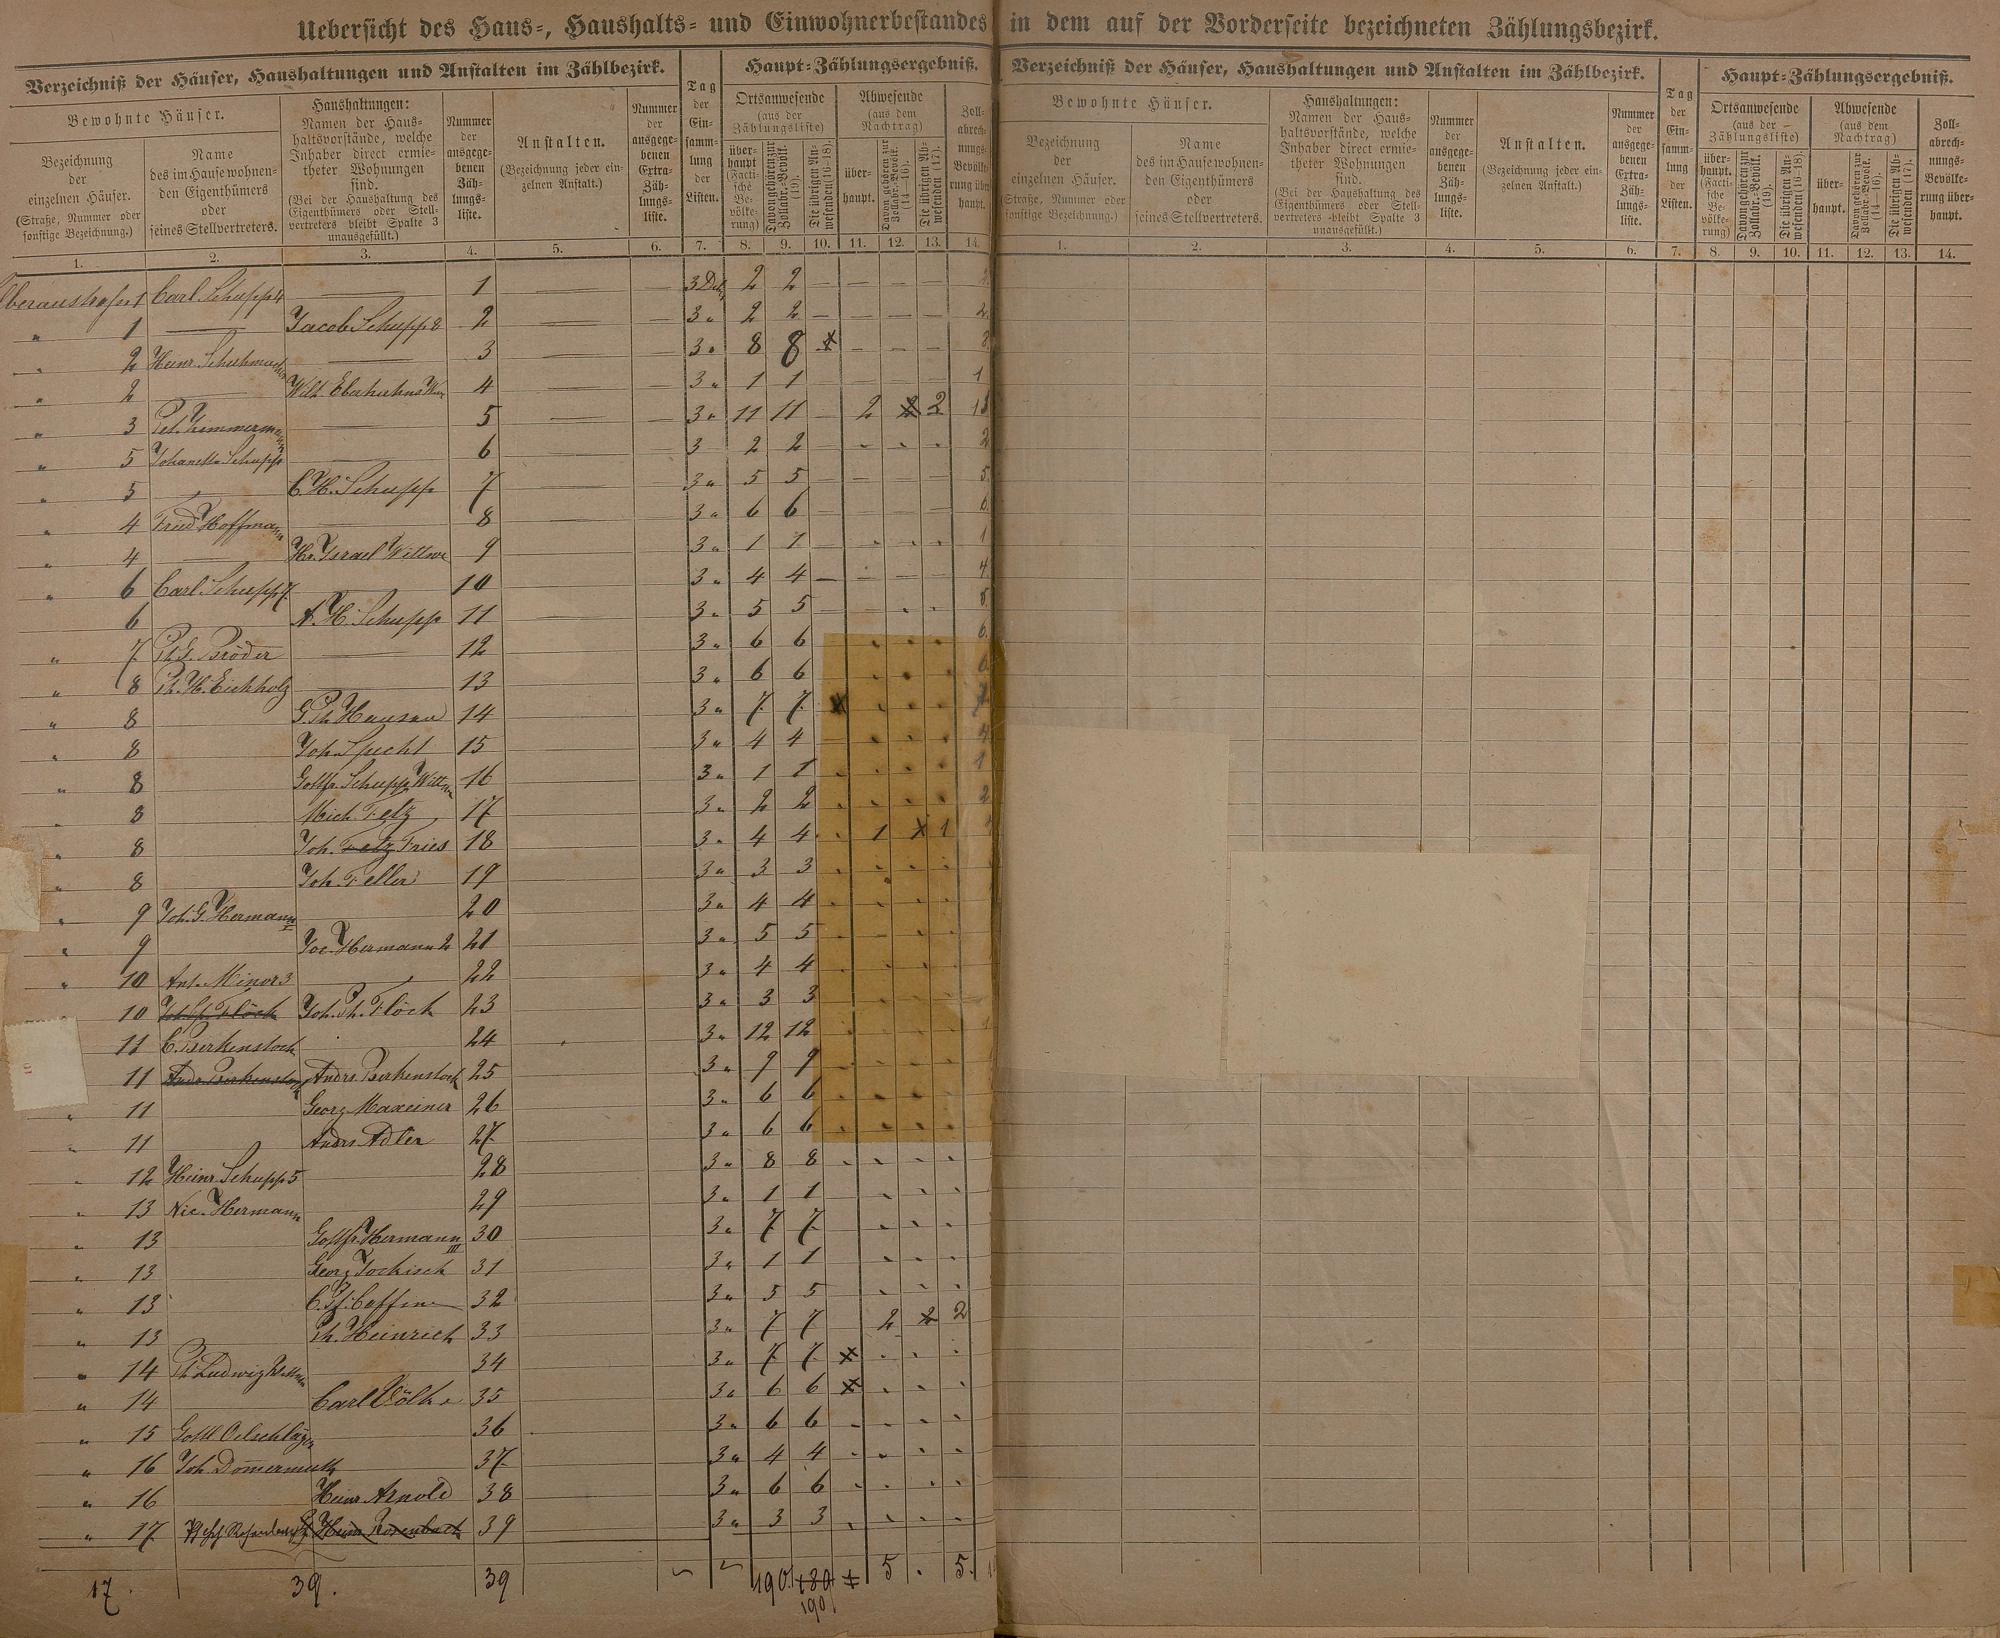 Uebersicht des Haus-, Haushalts- und Einwohnerbestandes in dem auf der Vorderseite bezeichneten Zählungsbezirk.
Verzeichniß der Häuser, Haushaltungen und Anstalten im Zählbezirk.
Bewohnte Häuser.
Bezeichnung
der
einzelnen Häuser.
(Straße, Nummer oder
sonstige Bezeichnung.)
Name
des im Hause wohnen-
den Eigenthümers
oder
seines Stellvertreters.
Haushaltungen:
Namen der Haus-
haltsvorstände, welche
Inhaber direct ermie-
theter Wohnungen
sind.
(Bei der Haushaltung des
Eigenthümers oder Stell-
vertreters bleibt Spalte 3
unausgefüllt.)
Nummer
der
ausgege-
benen
Zäh-
lungs-
liste.
Anstalten.
(Bezeichnung jeder ein-
zelnen Anstalt.)
Nummer
der
ausgege-
benen
Extra-
Zäh-
lungs-
liste.
Tag
der
Ein-
samm-
lung
der
Listen.
Haupt-Zählungsergebniß.
Ortsanwesende
(aus der
Zählungsliste)
über-
haupt
(Facti-
sche
Be-
völke-
rung)
Davon gehören zur
Zollabr.-Bevölk.
(19).
Die übrigen An-
wesenden (16-18).
Abwesende
(aus dem
Nachtrag)
über-
haupt.
Davon gehören zur
Zollabr.-Bevölk.
(14-16).
Die übrigen Ab-
wesenden (17).
Zoll-
abrech-
nungs-
Bevölke-
rung über-
haupt.
1. 2. 3. 4. 5. 6. 7. 8. 9. 10. 11. 12. 13. 14.
1 Carl Schupp 4 — 1 — — 3 2 2 — — — —
" 1 — Jacob Schupp 8 2 — — 3 " 2 2 — — — — 2
" 2 Heinr. Schuhmacher — 3 — — 3 " 8 8 — — — 8
" 2 — Wilh. 4 — — 3 " 1 1 — — — 1
" 3 Pet. Zimmermann — 5 — — 3 " 11 11 — 2 2 2 13
" 5 Schupp 6 — — 3 2 2 2
" 5 C. H. Schupp 7 — — 3 " 5 5 — — — — 5
" 4 Fried. Hoffmann — 8 — — 3 " 6 6 — — — — 6
" 4 — Hr. Israel Wittwe 9 3 " 1 1 — 1
" 6 Carl Schupp 7. 10 3 " 4 4 — — — — 4
6 A. H. Schupp 11 3 " 5 5 — 5
" 7 Bröder — 12 3 " 6 6 6
" 8 Ph. H. Eichholz 13 3 " 6 6
" 8 G. Ph. Hansau 14 3 " 7 7
" 8 Joh. Specht 15 3 " 4 4
" 8 Gottfr. Schupp 16 3 " 1 1 1
" 8 Mich. Felz 17 3 " 2 2 2
" 8 Joh. Felz Fries 18 3 " 4 4 1 1
" 8 Joh. Feller 19 3 " 3 3
" 9 Joh. G. Hermann 20 3 " 4 4
" 9 Hermann 2 21 3 " 5 5
" 10 Ant. Minor 3 22 3 " 4 4
" 10 Joh. Ph. Flöck Joh. Ph. Flöck 23 3 " 3 3
11 C. Berkenstock 24 3 " 12 12
11 Andr. Berkenstock Andrs. Berkenstock 25 3 " 9 9
" 11 Georg Maxeiner 26 3 " 6 6
" 11 Andrs. Adler 27 3 " 6 6
" 12 Heinr. Schupp 5 28 3 " 8 8
" 13 Nic. Hermann 29 3 " 1 1
" 13 Gottfr. Hermann III 30 3 " 7 7
" 13 Georg 31 3 " 1 1
" 13 32 3 " 5 5
" 13 Ph. Heinrich 33 3 " 7 7 2 2 2
" 14 Ph. Ludwig 34 3 " 7 7
" 14 Carl 35 3 " 6 6
" 15 Gottl. Oelschläger 36 3 " 6 6
" 16 Joh. Dommermuth 37 3 " 4 4
" 16 Heinr. Arnold 38 3 " 6 6
" 17 Heinr. Rosenbach 39 3 " 3 3
17. 39. 39 190 189 5 . 5.
190
Verzeichniß der Häuser, Haushaltungen und Anstalten im Zählbezirk.
Bewohnte Häuser.
Bezeichnung
der
einzelnen Häuser.
(Straße, Nummer oder
sonstige Bezeichnung.)
Name
des im Hause wohnen-
den Eigenthümers
oder
seines Stellvertreters.
Haushaltungen:
Namen der Haus-
haltsvorstände, welche
Inhaber direct ermie-
theter Wohnungen
sind.
(Bei der Haushaltung des
Eigenthümers oder Stell-
vertreters bleibt Spalte 3
unausgefüllt.)
Nummer
der
ausgege-
benen
Zäh-
lungs-
liste.
Anstalten.
(Bezeichnung jeder ein-
zelnen Anstalt.)
Nummer
der
ausgege-
benen
Extra-
Zäh-
lungs-
liste.
Tag
der
Ein-
samm-
lung
der
Listen.
Haupt-Zählungsergebniß.
Ortsanwesende
(aus der
Zählungsliste)
über-
haupt.
(Facti-
sche
Be-
völke-
rung)
Davon gehören zur
Zollabr.-Bevölk.
(19).
Die übrigen An-
wesenden (16-18).
Abwesende
(aus dem
Nachtrag)
über-
haupt.
Davon gehören zur
Zollabr.-Bevölk.
(14-16).
Die übrigen Ab-
wesenden (17).
Zoll-
abrech-
nungs-
Bevölke-
rung über-
haupt.
1. 2. 3. 4. 5. 6. 7. 8. 9. 10. 11. 12. 13. 14.